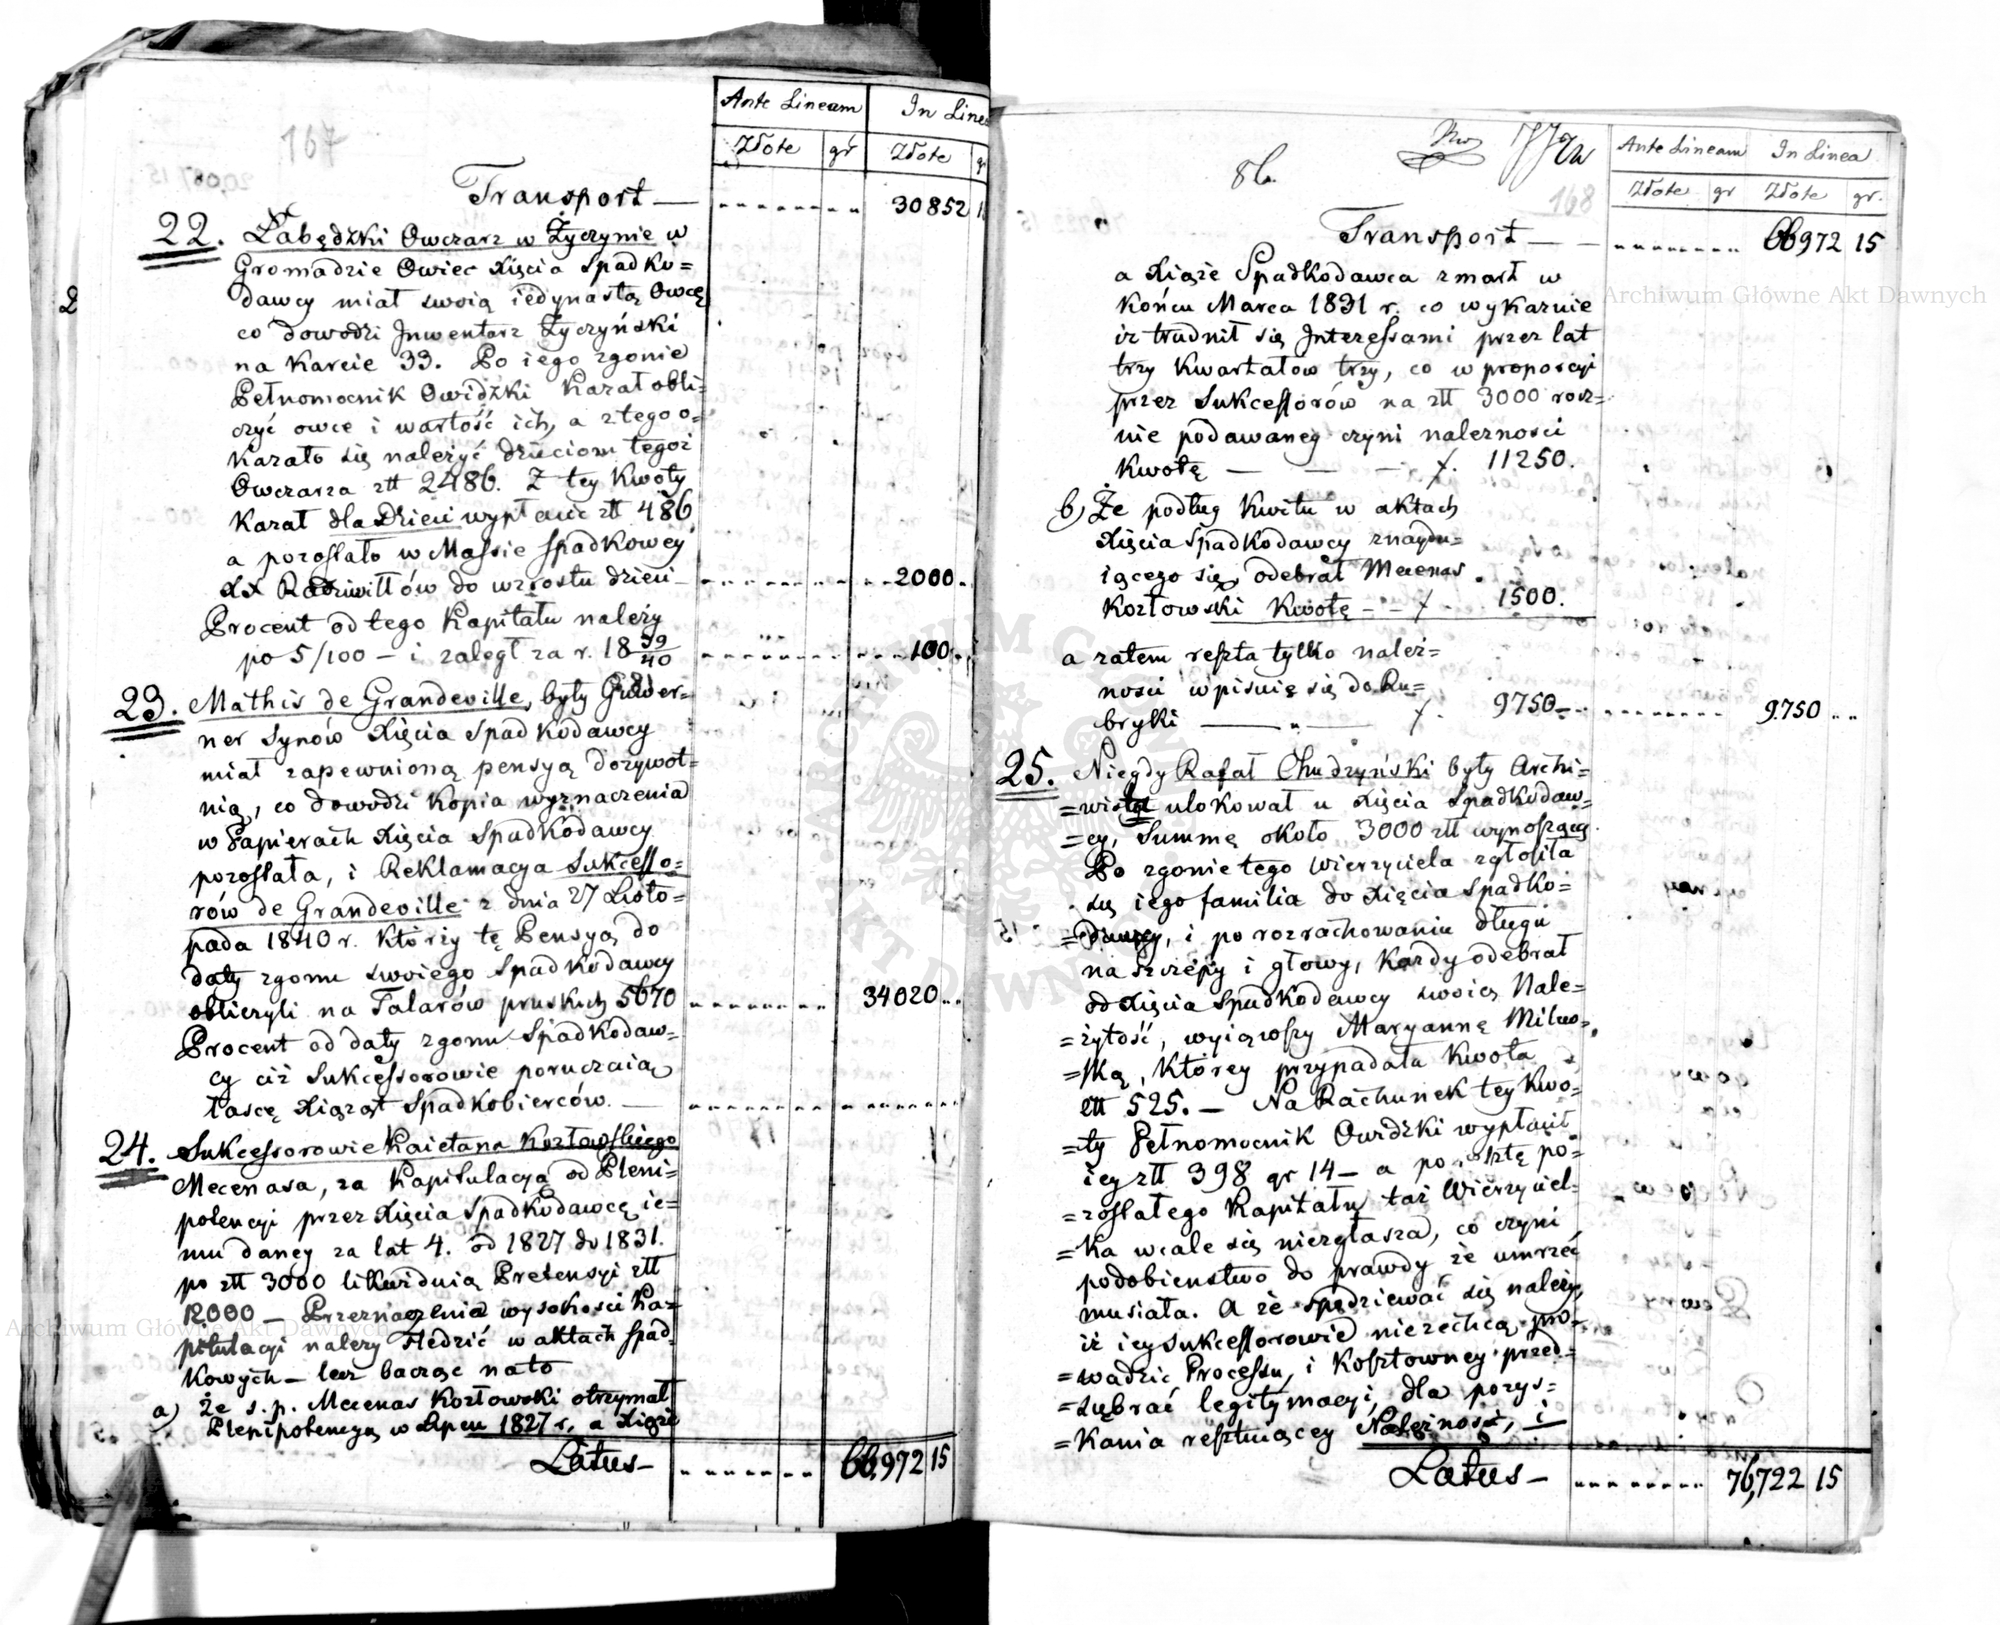 167
Ante Lineam In Linea
Złote gr Złote g
Transport — 30852 1
22. Łabędzki Owczarz w Życzynie w
Gromadzie Owiec Xięcia Spadko=
dawcy miał swoią iedynastą Owcę
co dowodzi Inwentarz Życzyński
na karcie 33. Po iego zgonie
Pełnomocnik Owidzki kazał obli=
czyć owce i wartość ich, a z tego o=
kazało się należyć dzieciom tegoż
Owczarza złł 2486. Z tey kwoty
kazał dla Dzieci wypłacić złł 486
a pozostało w Massie Spadkowey
XX Radziwiłłów do wzrostu dzieci — 2000
Procent od tego Kapitału należy
po 5/100 — i zaległ za r. 18 39/40 100
23. Mathis de Grandeville, były Guwer=
ner Synów Xięcia Spadkodawcy
miał zapewnioną pensyą dożywot=
nią, co dowodzi kopia wyznaczenia
w Papierach Xięcia Spadkodawcy
pozostała, i Reklamacya Sukcesso=
rów de Grandeville z dnia 27 Listo=
pada 1840 r. którzy tę Pensyą do
daty zgonu swoiego Spadkodawcy
obliczyli na Talarów pruskich 5670 34020
Procent od daty zgonu Spadkodaw=
cy ciż Sukcessorowie poruczaią
łascę Xiążąt Spadkobierców. —
24. Sukcessorowie Kaietana Kozłowskiego
Mecenasa, za Kapitulacyą od Pleni=
potencyi przez Xięcia Spadkodawcę ie=
mu daney za lat 4. od 1827 do 1831.
po złł 3000 likwiduią Pretensyi złł
12000 — Przeznaczenia wysokości Ka=
pitulacyi należy śledzić w aktach Spad=
kowych — lecz bacząc na to
a) że s. p. Mecenas Kozłowski otrzymał
Plenipotencyą w Lipcu 1827 r, a Xiąże
Latus — 66,972 15
86.
168
Ante Lineam In Linea
Złote gr Złote gr.
Transport — 66972 15
a Xiąże Spadkodawca zmarł w
końcu Marca 1831 r. co wykazuie
iż trudnił się Interessami przez lat
trzy kwartałów trzy, co w proporcyi
przez Sukcessorów na złł 3000 rocz=
nie podawaney czyni należności
kwotę — — — f. 11250.
b) Że podług kwitu w aktach
Xięcia Spadkodawcy znaydu=
iącego się, odebrał Mecenas
Kozłowski kwotę — — f. 1500.
a zatem reszta tylko należ=
ności wpisuie się do Ru=
bryki — „ — f. 9750 9750
25. Niegdy Rafał Chudzyński były Archi=
=wista ulokował u Xięcia Spadkodaw=
=cy, Summę około 3000 złł wynoszącą.
Po zgonie tego Wierzyciela zgłosiła
się iego familia do Xięcia Spadko=
=dawcy, i po rozrachowaniu długu
na szczepy i głowy, każdy odebrał
od Xięcia Spadkodawcy swoią Nale=
=żytość, wyiąwszy Maryannę Milew=
=ską, którey przypadała kwota
złł 525. — Na Rachunek tey kwo=
=ty Pełnomocnik Owidzki wypłacił
iey złł 398 gr 14 — a po resztę po=
=zostałego Kapitału taż Wierzyciel=
=ka wcale się niezgłasza, co czyni
podobieństwo do prawdy że umrzeć
musiała. A że spodziewać się należy,
iż iey Sukcessorowie niezechcą pro=
=wadzić Processu, i kosztowney przed=
=siębrać legitymacyi, dla pozys=
=kania resztuiącey Należności, i
Latus — 76,722 15
Archiwum Główne Akt Dawnych
Archiwum Główne Akt Dawnych
ARCHIWUM GŁÓWNE AKT DAWNYCH